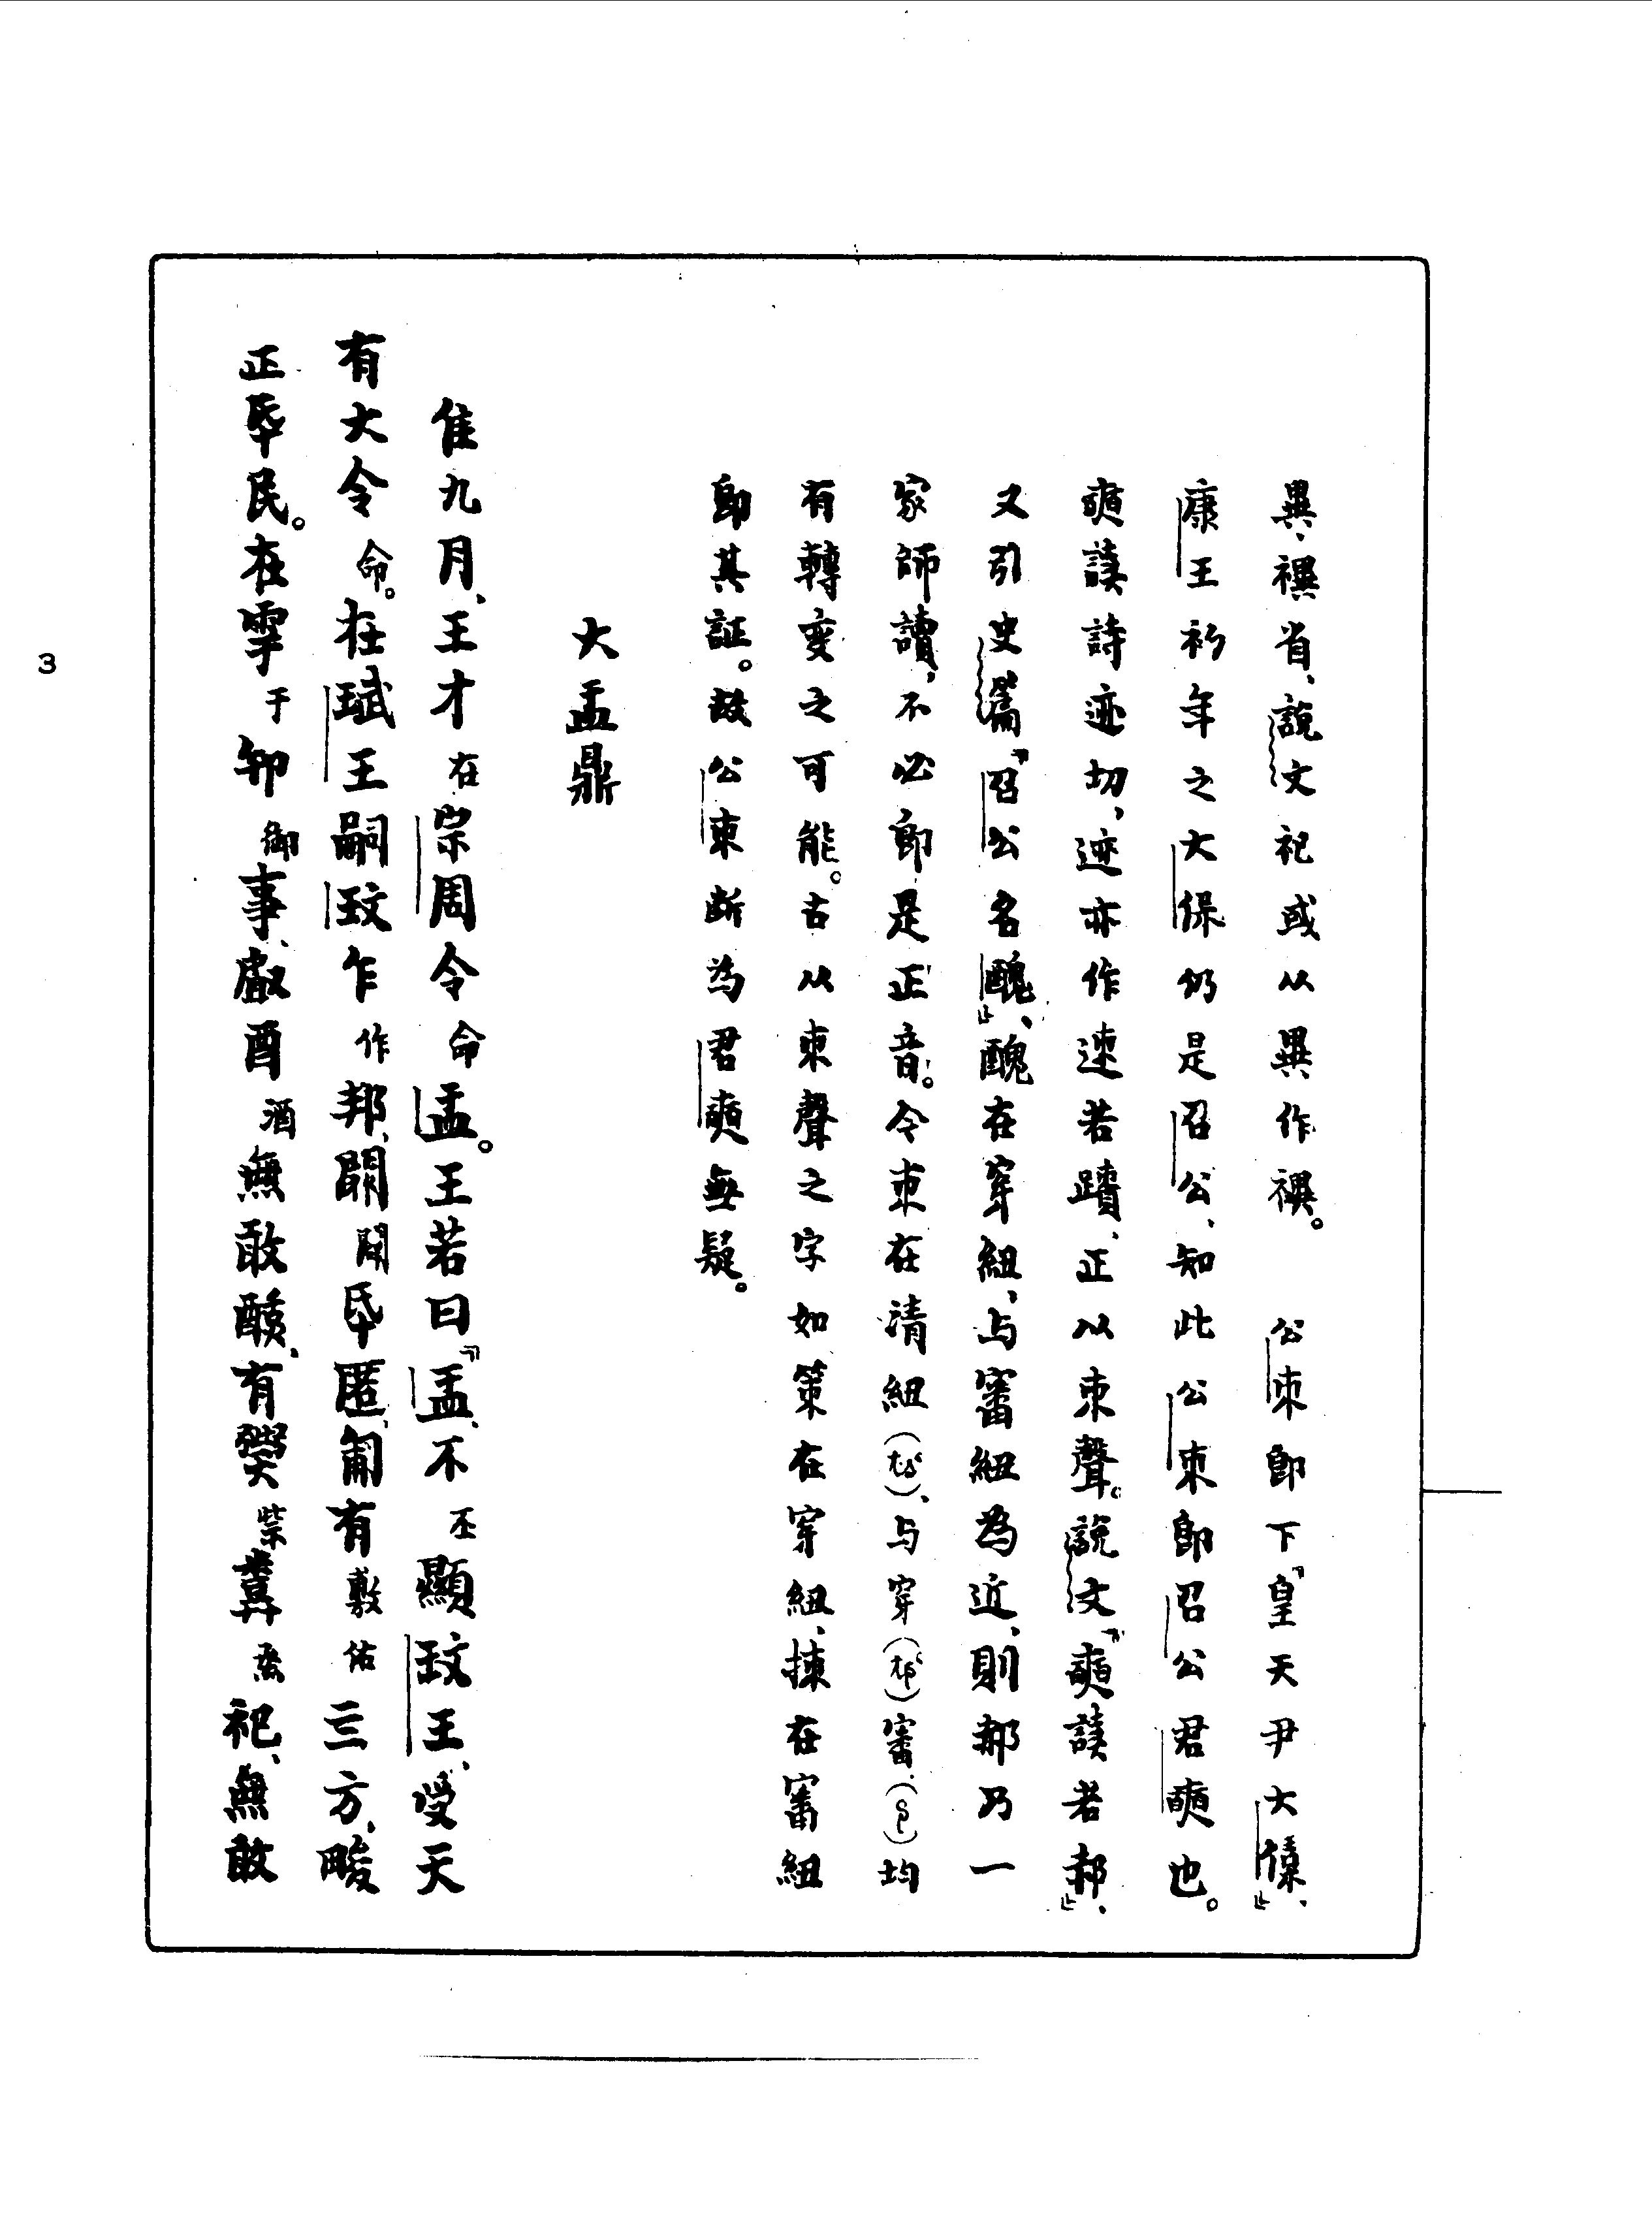 異、禩省、說文祀或从異作禩。　公朿即下『皇天尹大保』、
康王初年之大保仍是召公、知此公朿即召公君奭也。
奭讀詩迹切，迹亦作速若蹟、正以朿聲。說文『奭讀若郝』、
又引史篇『召公名醜』、醜在穿紐、与審紐為近、則郝乃一
家師讀，不必即是正音。今朿在清紐（ts‘）、与穿（tʂ‘）審（ʂ）均
有轉變之可能。古从朿聲之字如策在穿紐、揀在審紐
即其証。故公朿断為君奭無疑。
大盂鼎
隹九月、王才在宗周令命盂。王若曰『盂、不丕顯玟王、受天
有大令命。在珷王嗣玟乍作邦、闢開氒匿、匍有敷佑三方、畯
正氒民。在雩于卸御事、𠭯酉酒無敢酖、有𩰫祡𦎫烝祀、無敢
3